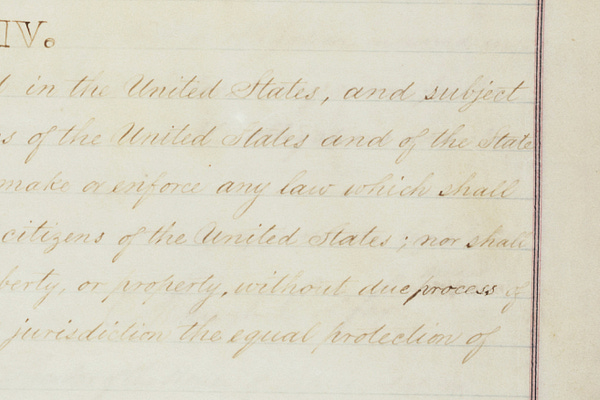 IV.
in the United States, and subject
s of the United States and of the State
make or enforce any law which shall
citizens of the United States; nor shall
berty, or property, without due process of
jurisdiction the equal protection of